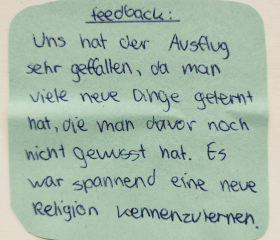 feedback:
Uns hat der Ausflug
sehr gefallen, da man
viele neue Dinge gelernt
hat, die man davor noch
nicht gewusst hat. Es
war spannend eine neue
Religion kennenzulernen.